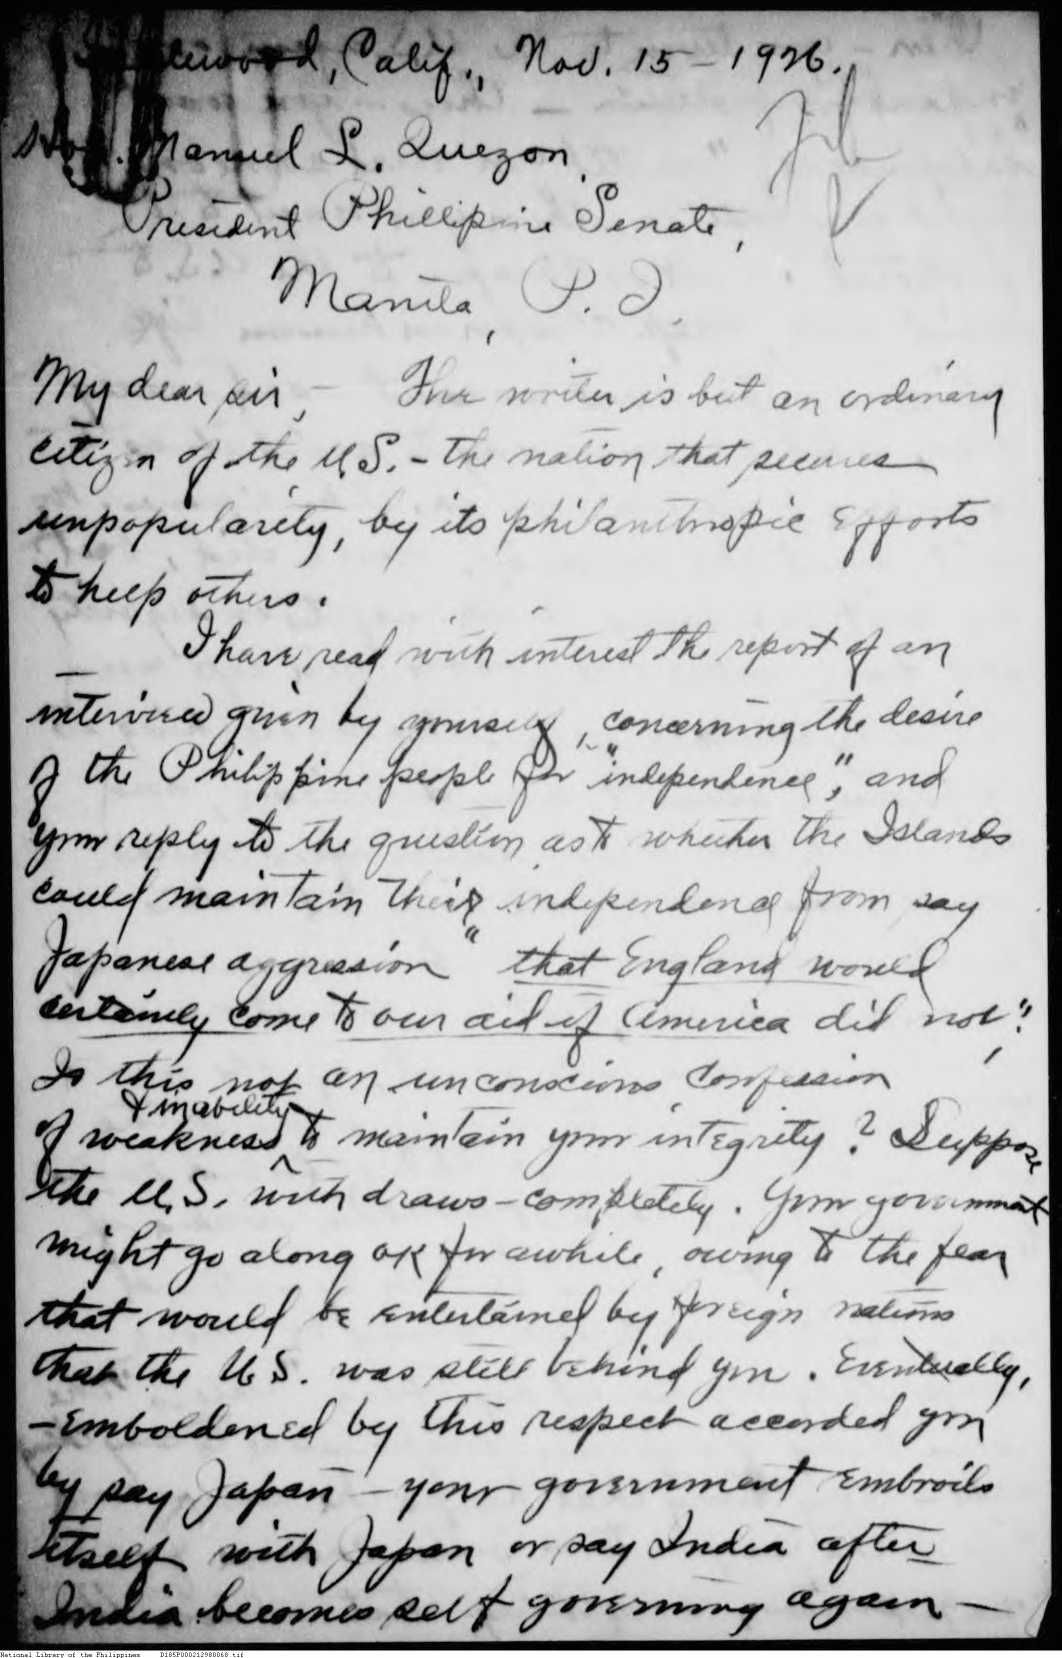 Calif., Nov. 15 - 1926.
Hon. Manuel L. Quezon,
President Phillipine Senate,
Manila, P. I.
My dear sir, - The writer is but an ordinary
citizen of the U.S. - the nation that secures
unpopularity, by its philanthropic efforts
to help others.
I have read with interest the report of an
interview given by yourself, concerning the desire
of the Philippine people for "independence", and
your reply to the question as to whether the Islands
could maintain their independence from say
Japanese aggression "that England would
certainly come to our aid if America did not".
Is this not an unconscious confession
& inability
of weakness ^ to maintain your integrity? Suppose
the U.S. withdraws - completely. Your government
might go along OK for awhile, owing to the fear
that would be entertained by foreign nations
that the U.S. was still behind you. Eventually,
- emboldened by this respect accorded you
by say Japan - your government embroils
itself with Japan or say India after
India becomes self governing again -
National Library of the Philippines D185P000212980068.tif